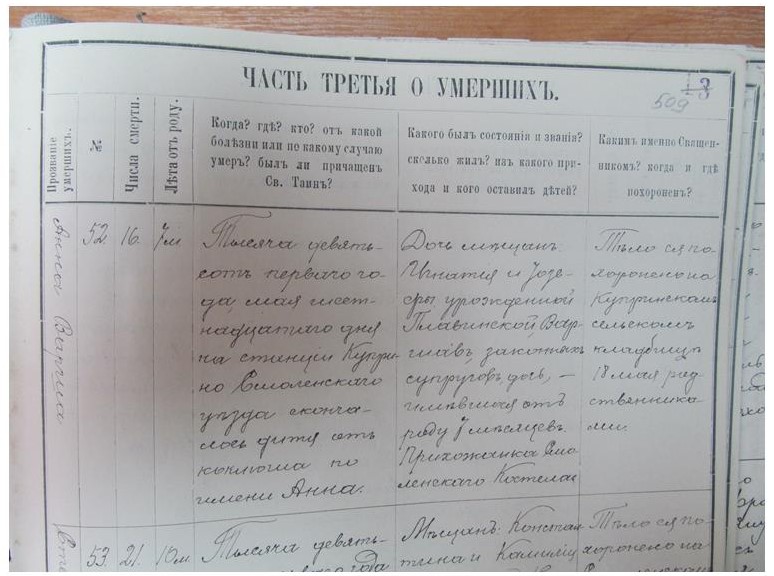 ЧАСТЬ ТРЕТЬЯ О УМЕРШИХЪ.
509
13
Прозваніе умершихъ.
№
Числа смерти.
Лѣта отъ роду.
Когда? гдѣ? кто? отъ какой
болѣзни или по какому случаю
умеръ? былъ ли причащенъ
Св. Таинъ?
Какого былъ состоянія и званія?
сколько жилъ? изъ какого при-
хода и кого оставилъ дѣтей?
Какимъ именно Священ-
никомъ? когда и гдѣ
похороненъ?
Анна Варгша
52.
16.
7м
Тысяча девять-
сотъ перваго го-
да мая шест-
надцатаго дня
на станціи Купри-
но Смоленскаго
уѣзда сконча-
лось дитя отъ
коклюша по
имени Анна.
Дочь мѣщан:
Игнатія и Юзе-
фы урожденной
Плавинской Вар-
гшавъ, законныхъ
супруговъ дочь, —
имѣвшая отъ
роду 7 мѣсяцевъ.
Прихожанка Смо-
ленскаго Костела
Тѣло ея по-
хоронено на
Купринскомъ
сельскомъ
кладбищѣ
18 мая род-
ственника-
ми.
53.
21.
10м.
Тысяча девять-
года
Мѣщан: Констан
тина и Камиліи
Тѣло ея по-
хоронено на